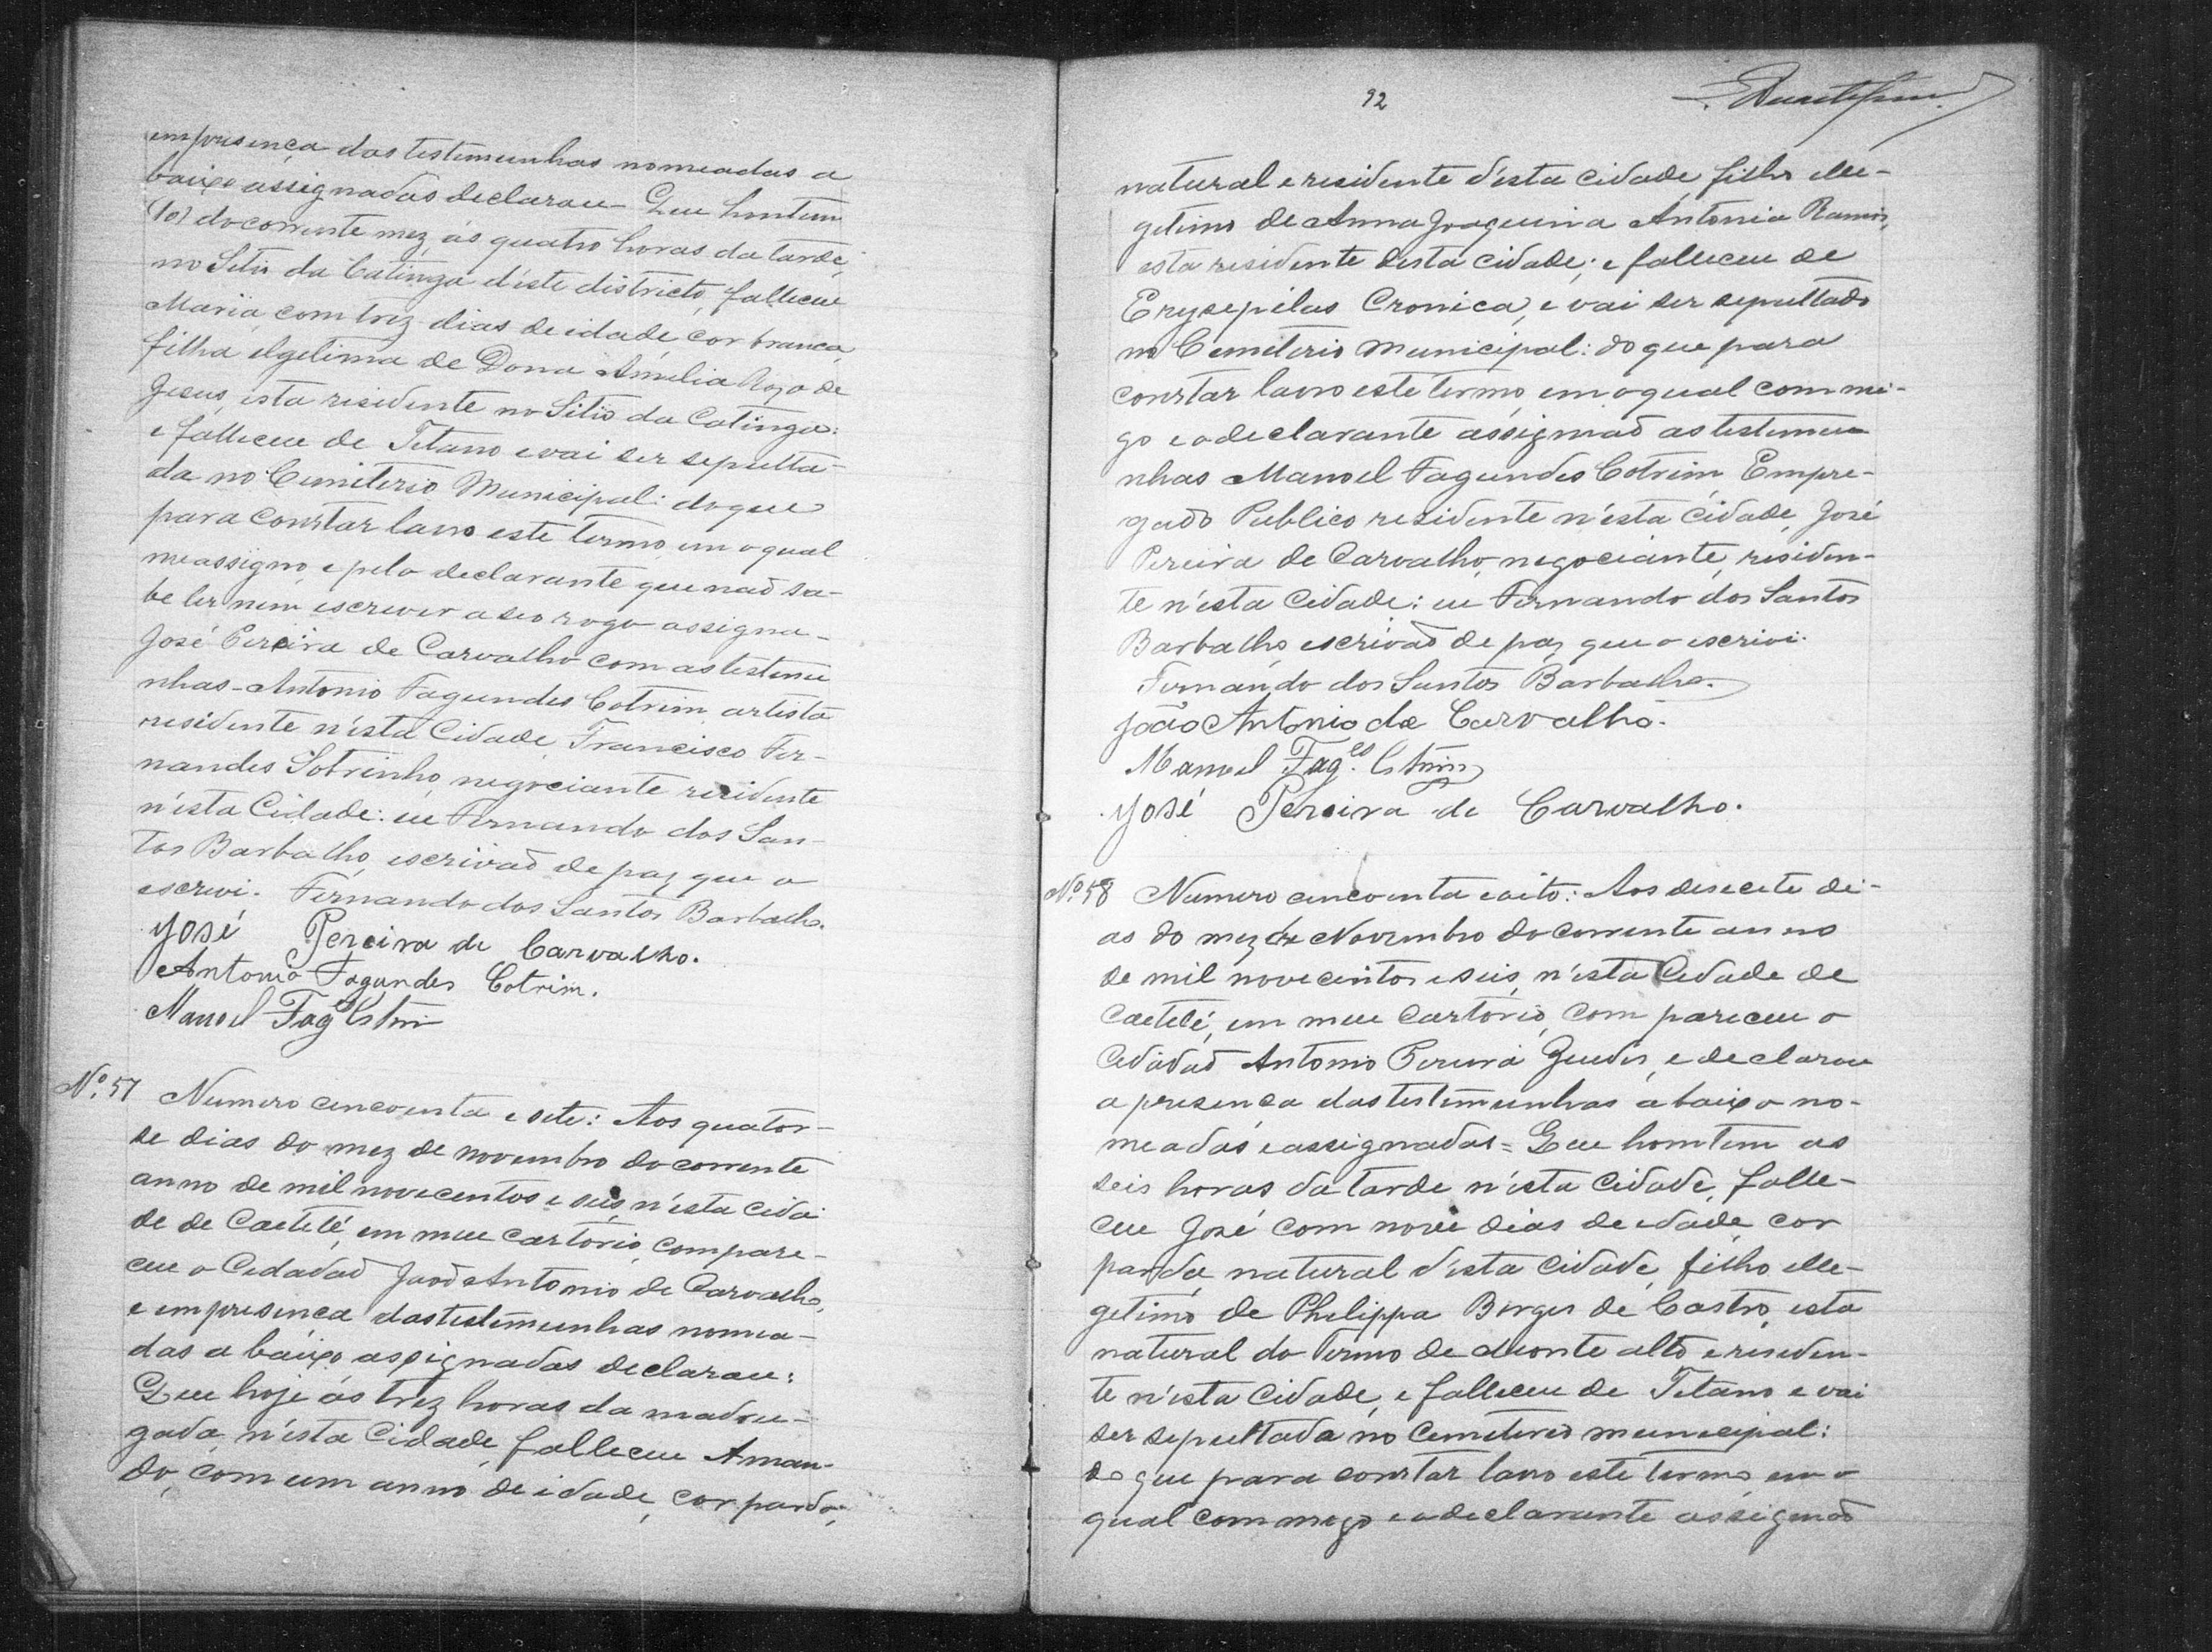 em presença das testemunhas nomeadas a
baixo assignadas declarou - Que hontem
(10) do corrente mez, ás quatro horas da tarde,
no Sitio da Catinga d'este districto, falleceu
Maria, com trez dias de idade, cor branca,
filha elgetima de Dona Amelia Roza de
Jesus, esta residente no Sitio da Catinga:
e falleceu de Tetano e vai ser sepulta-
da no Cemiterio Municipal: do que
para constar lavro este termo, em o qual
me assigno, e pelo declarante que naõ sa-
be ler nem escrever a seo rogo assigna-
José Pereira de Carvalho com as testemu
nhas - Antonio Fagundes Cotrim, artista
residente n'esta Cidade, Francisco Fer-
nandes Sobrinho, negociante residente
n'esta Cidade: eu Fernando dos San-
tos Barbalho, escrivaõ de paz que o
escrevi. Fernando dos Santos Barbalho.
José Pereira de Carvalho.
Antonio Fagundes Cotrim.
Manoel Fag.es Cotrim
Nº. 57 Numero cincoenta e sete: Aos quator-
se dias do mez de novembro do corrente
anno de mil novecentos e seis, n'esta cida
de de Caeteté, em meu cartorio, compare-
ceu o Cedadaõ Joaõ Antonio de Carvalho,
e em presença das testemunhas nomea-
das a baixo assignadas declarou:
Que hoje ás trez horas da madru-
gada, n'esta Cidade, falleceu Aman-
do, com um anno de idade, cor parda,
92
natural e residente d'esta cidade, filho ille-
getimo de Anna Joaquina Antonia Ramos,
esta residente desta cidade; e falleceu de
Erysepélas Cronica, e vai ser sepultado
no Cemeterio Municipal: do que para
constar lavro este termo, em o qual com mi-
go e o declarante assignaõ as testemu
nhas Manoel Fagundes Cotrim, Empre-
gado Publico residente n'esta Cidade, José
Pereira de Carvalho, negociante, residen-
te n'esta Cidade: eu Fernando dos Santos
Barbalho, escrivaõ de paz que o escrivi.
Fernando dos Santos Barbalho.
João Antonio de Carvalho.
Manoel Fag.es Cotrim
José Pereira de Carvalho.
Nº. 58 Numero cincoenta e oito: Aos desecete di-
as do mez de Novembro do corrente anno
de mil novecentos e seis, n'esta Cedade de
Caeteté, em meu Cartorio, com pareceu o
Cedadaõ Antonio Pereira Guedes, e declarou
a presença das testemunhas a baixo no-
meadas e assignadas = Que hontem as
seis horas da tarde n'esta Cidade, falle-
ceu José com nove dias de edade, cor
parda, natural d'esta Cidade, filho ille-
getimo de Philippa Borges de Castro, esta
natural do Termo de Monte alto e residen-
te n'esta Cidade, e falleceu de Tetano e vai
ser sepultada no Cemeterio municipal:
do que para constar lavro este termo, em o
qual commigo e o declarante assignaõ